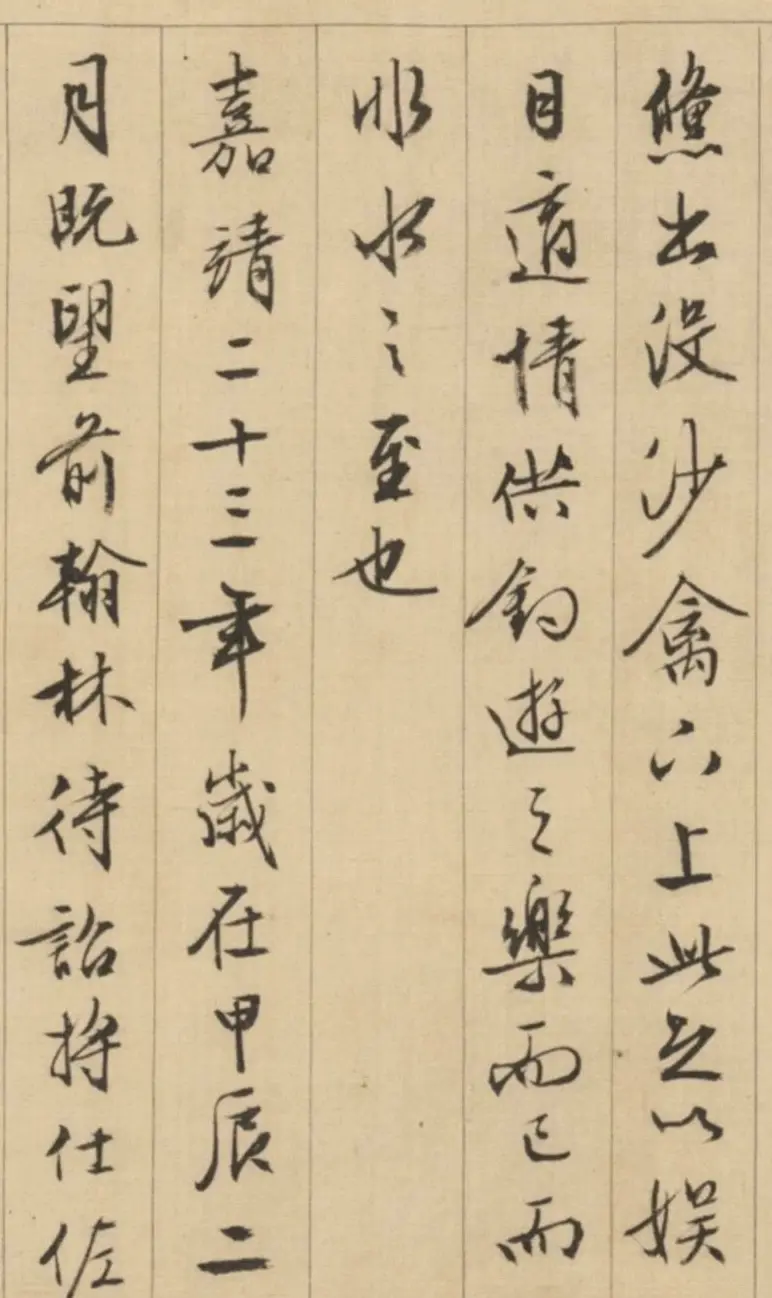 鯈出没沙禽下上此足以娱
目適情供釣遊之樂而已而
非水之至也
嘉靖二十三年歲在甲辰二
月既望前翰林待詔將仕佐